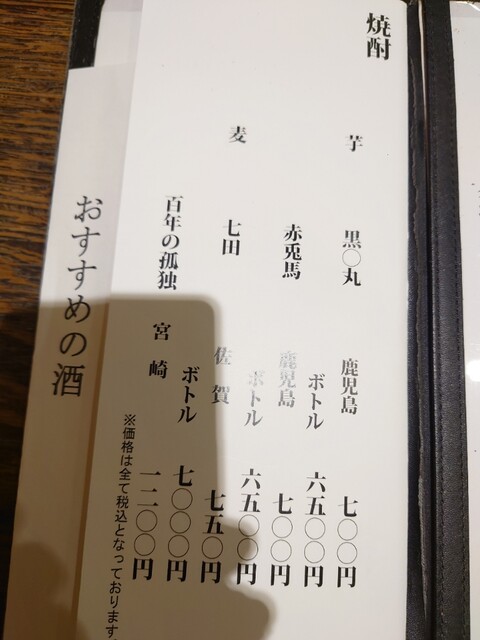 焼酎
芋 黒〇丸 鹿児島 七〇〇円
ボトル 六五〇〇円
赤兎馬 鹿児島 七〇〇円
ボトル 六五〇〇円
麦 七田 佐賀 七五〇円
ボトル 七〇〇〇円
百年の孤独 宮崎 一二〇〇円
※価格は全て税込となっております。
おすすめの酒